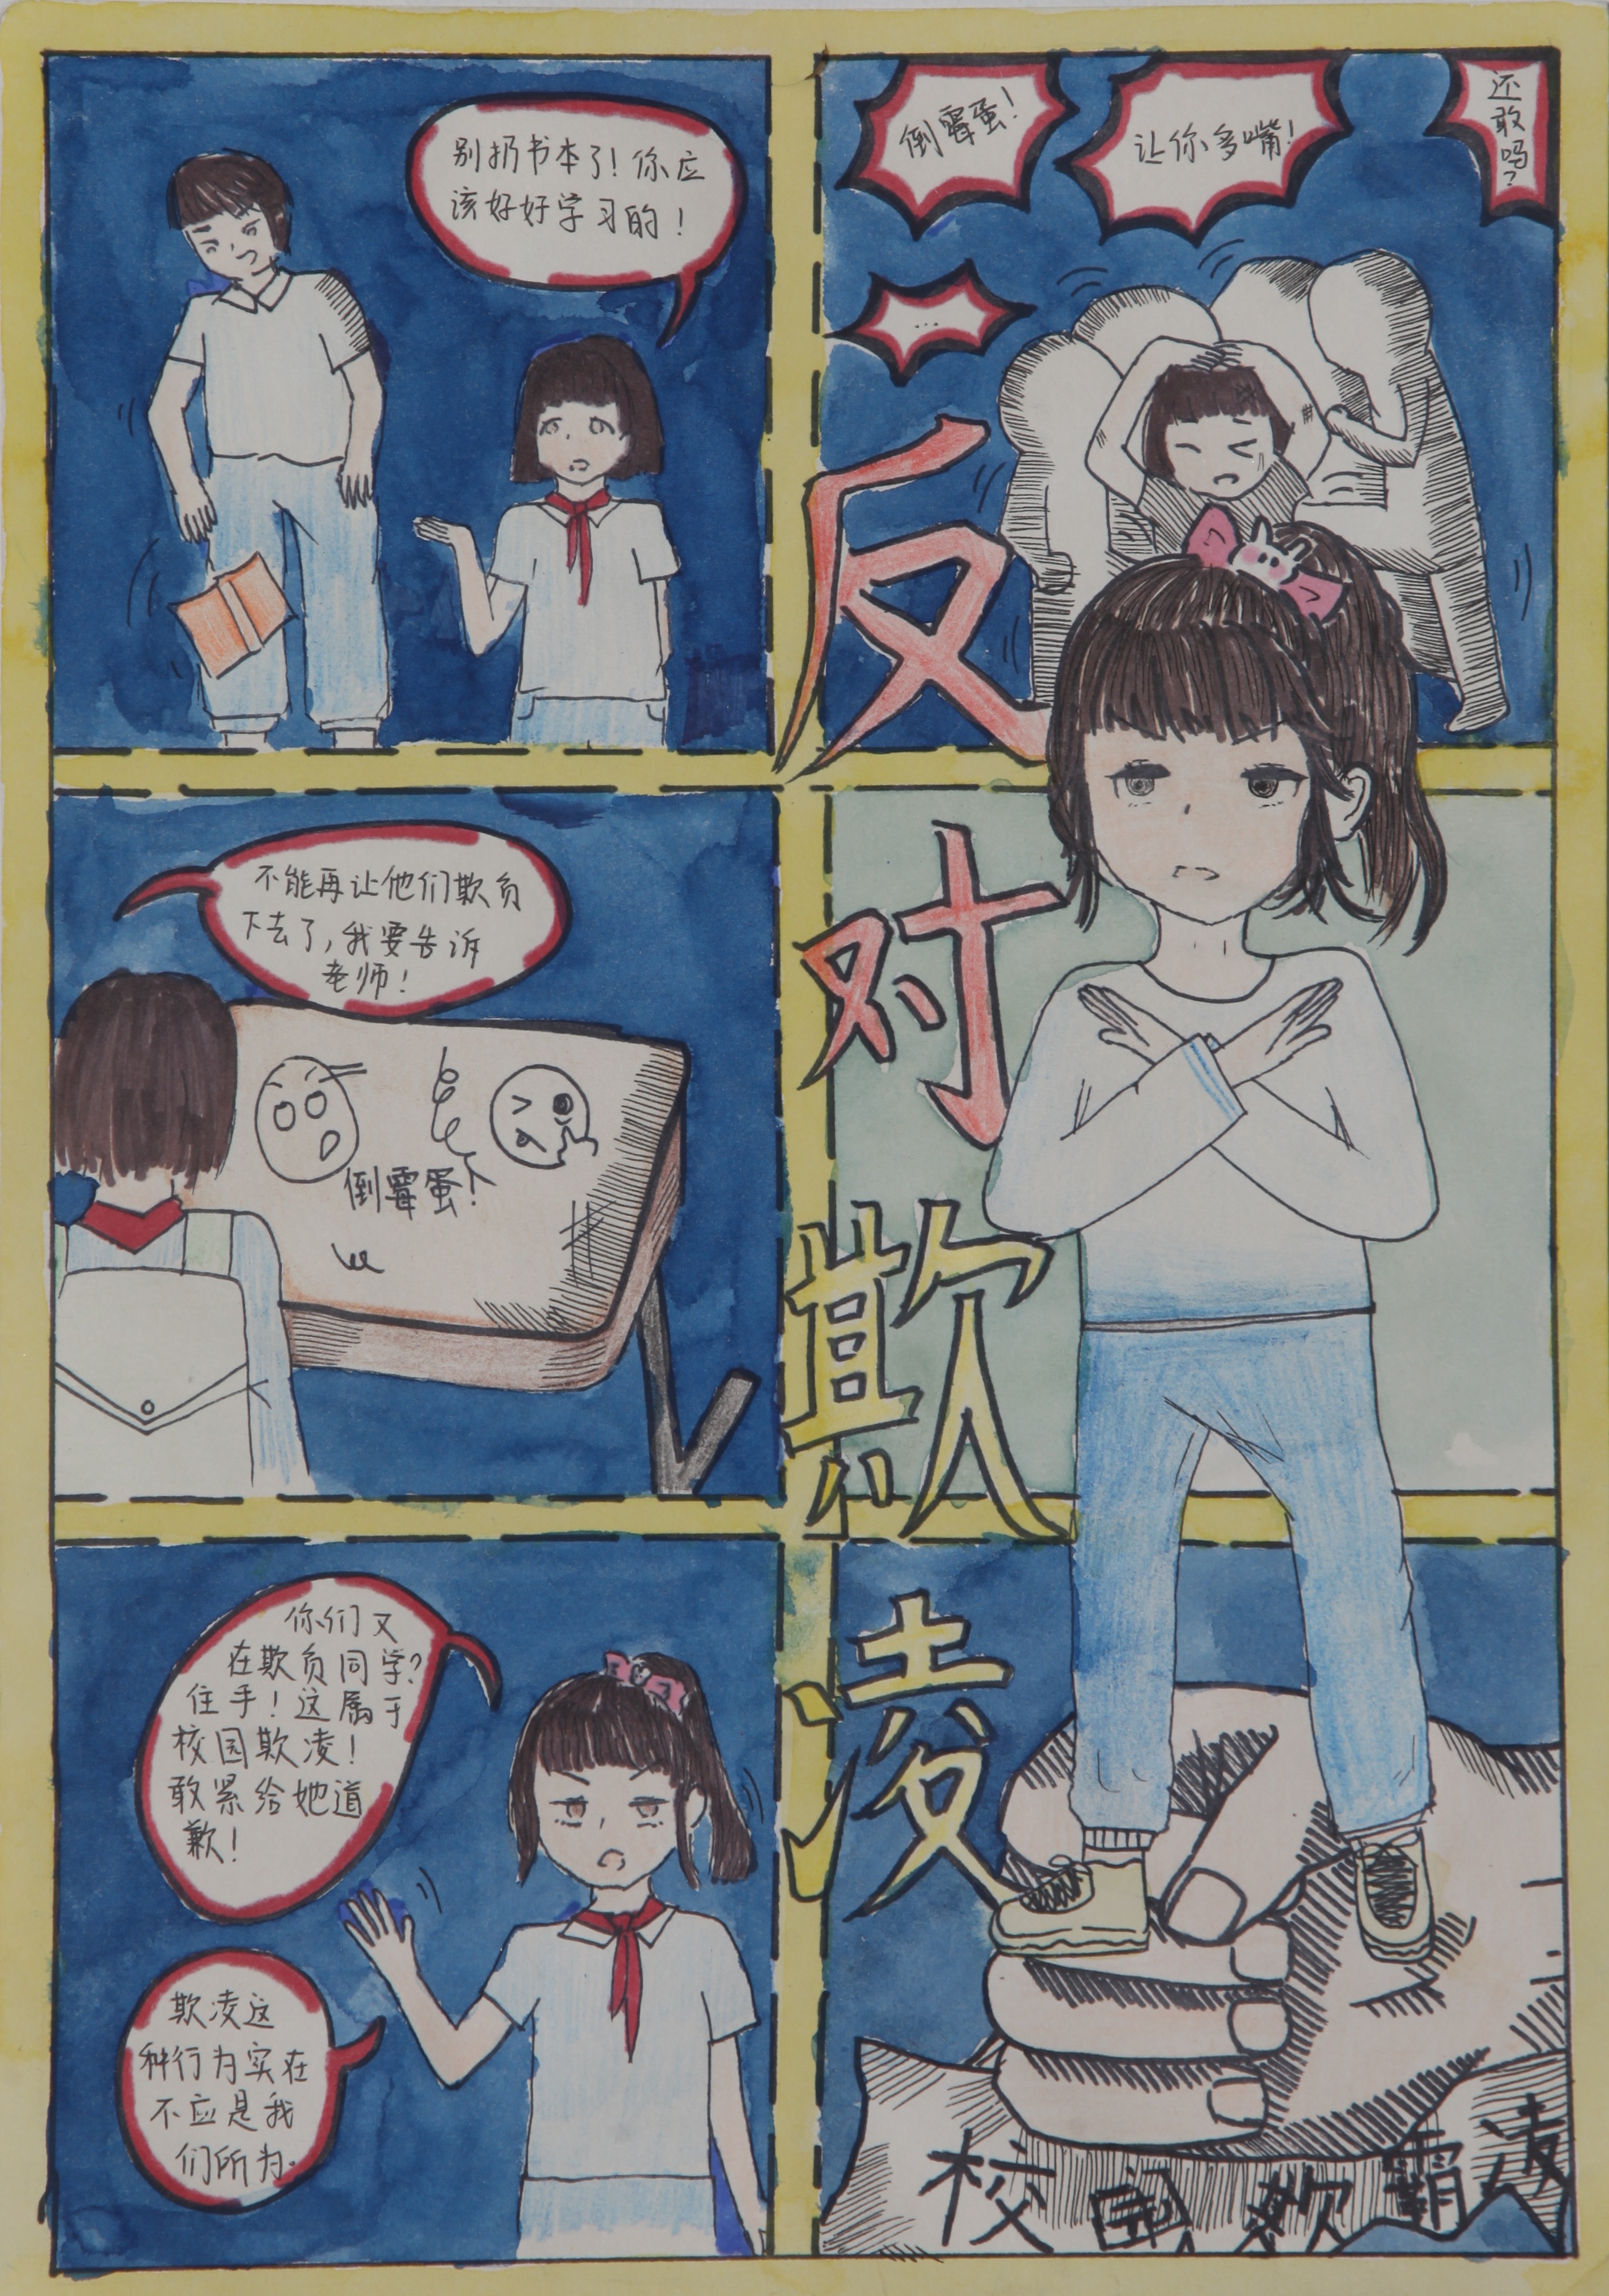 别扔书本了！你应
该好好学习的！
倒霉蛋！
让你多嘴！
还敢吗？
...
不能再让他们欺负
下去了，我要告诉
老师！
倒霉蛋！
你们又
在欺负同学？
住手！这属于
校园欺凌！
敢紧给她道
歉！
欺凌这
种行为实在
不应是我
们所为.
反对欺凌
校园欺霸凌